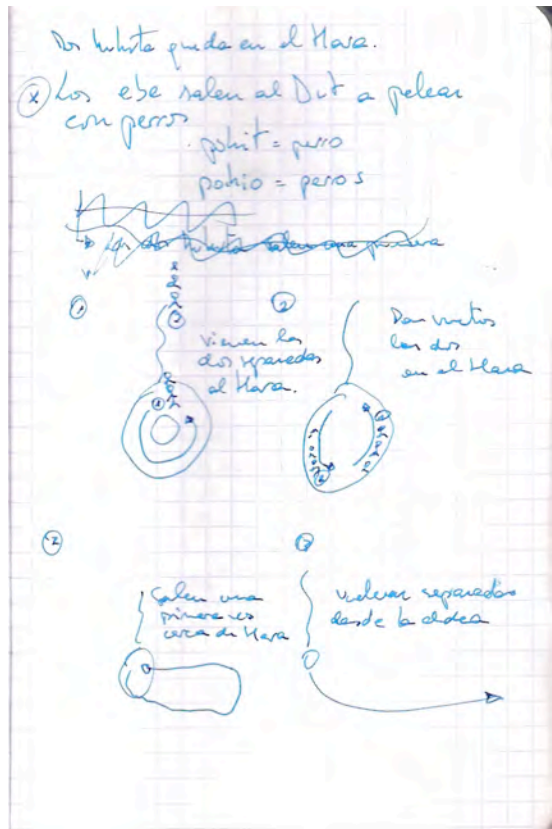 Dos huhuta queda en el Hara.
Los ebe salen al Dit a pelear
con perros
pohit = perro
pohio = perros
1
vienen los
dos separados
al Hara.
2
Dan vueltas
los dos
en el Hara
2
Salen una
primera vez
cerca de Hara
3
vuelven separados
desde la aldea